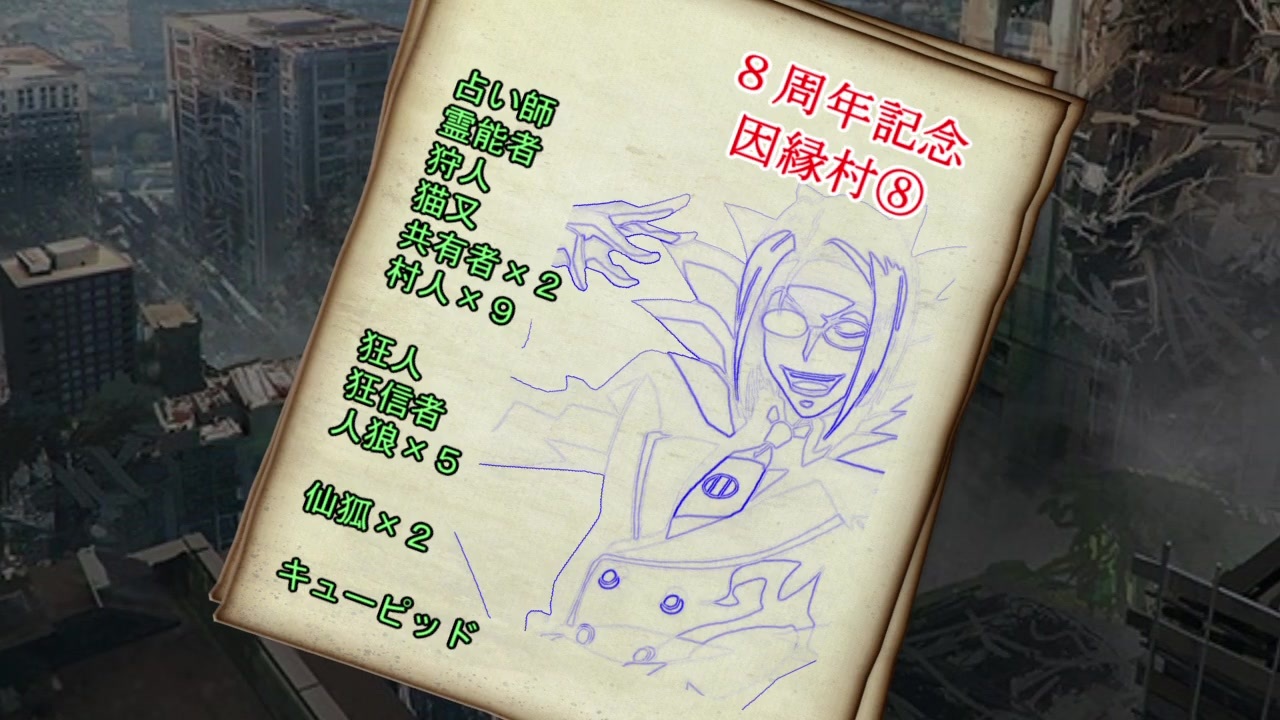 ８周年記念
因縁村⑧
占い師
霊能者
狩人
猫又
共有者×２
村人×９
狂人
狂信者
人狼×５
仙狐×２
キューピッド